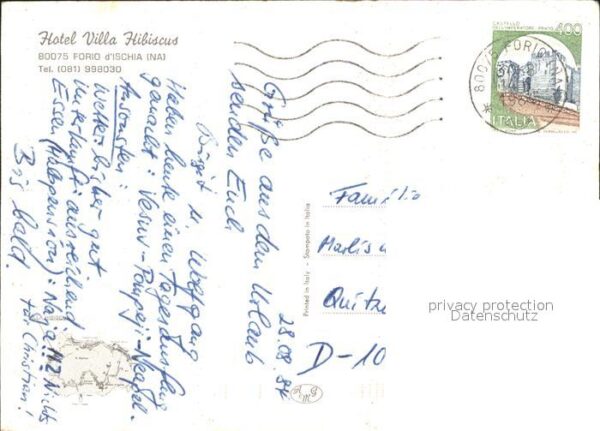 Hotel Villa Hibiscus
80075 FORIO d'ISCHIA (NA)
Tel. (081) 998030
CASTELLO
400
ITALIA
80075 FORIO (NA)
28.08.84
Grüße aus dem Urlaub
senden Euch
Birgit u. Wolfgang
Haben heute einen Tagesausflug
gemacht: Vesuv-Pompeji-Neapel.
Ansonsten:
Wetter: bisher gut
Unterkunft: ausreichend
Essen (Halbpension): Naja!!! Nichts
für Christian!
Bis bald.
Printed in Italy - Stampato in Italia
Familie
D-10
privacy protection
Datenschutz